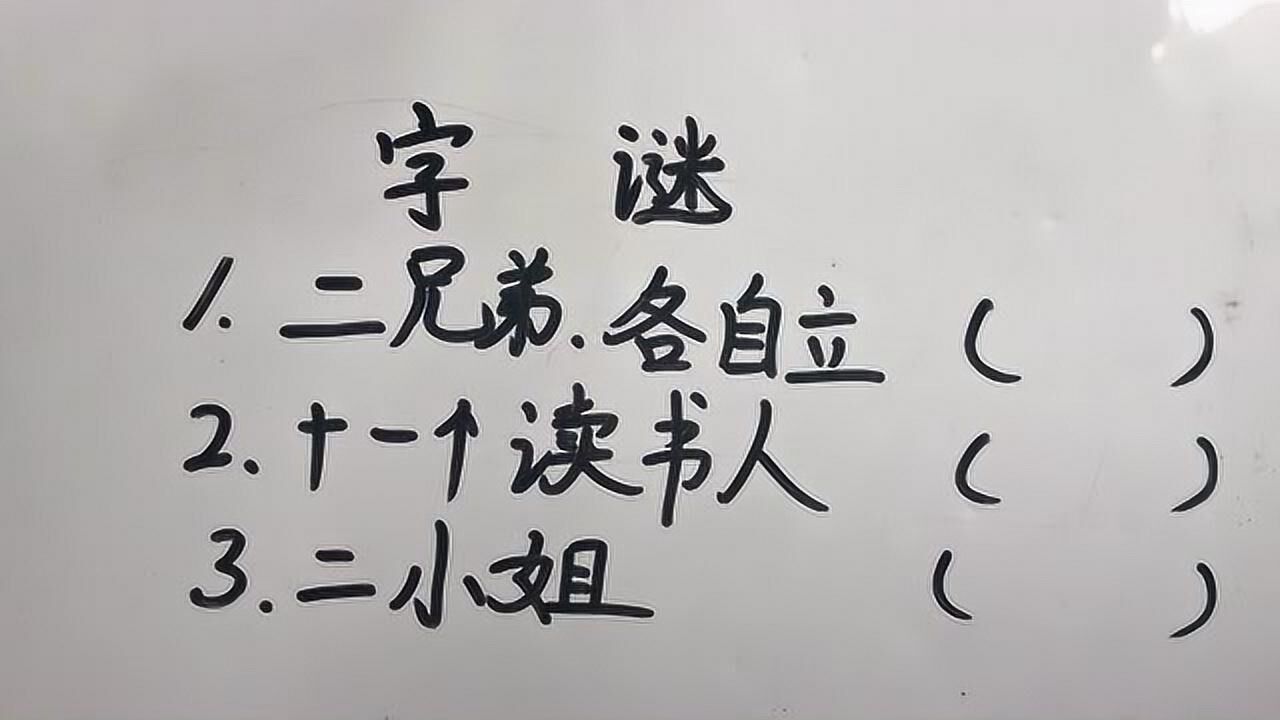 字 谜
1. 二兄弟.各自立 ( )
2. 十一个读书人 ( )
3. 二小姐 ( )